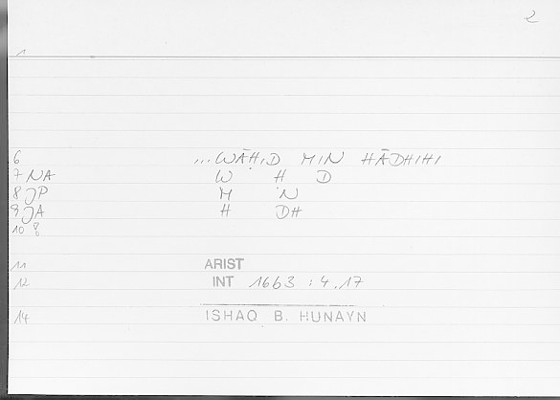 2
1
6 ...WĀḤID MIN HĀDHIHI
7 NA W Ḥ D
8 JP M N
9 JA H DH
10 8
11 ARIST
12 INT 16b3 : 4.17
14 ISHAQ B. HUNAYN